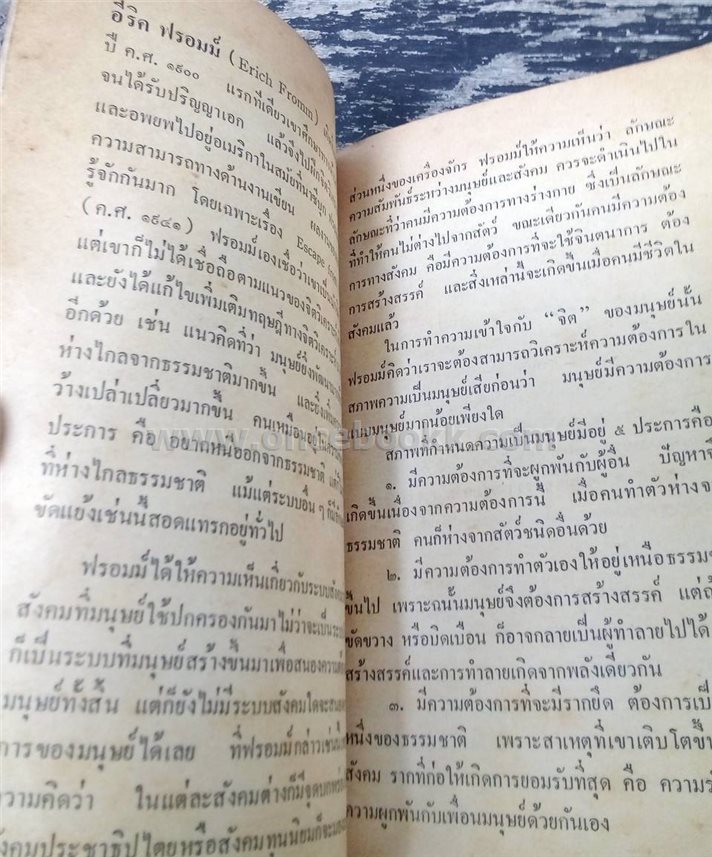 อีริค ฟรอมม์ (Erich Fromm)
ปี ค.ศ. ๑๙๐๐ แรกทีเดียวเขาศึกษาทาง
จนได้รับปริญญาเอก แล้วจึงไปฝึก
และอพยพไปอยู่อเมริกาในสมัยที่นาซีบุก
ความสามารถทางด้านงานเขียน
รู้จักกันมาก โดยเฉพาะเรื่อง Escape
(ค.ศ. ๑๙๔๑) ฟรอมม์เองเชื่อว่าเขาเป็น
แต่เขาก็ไม่ได้เชื่อถือตามแนวของจิตวิเคราะห์
และยังได้แก้ไขเพิ่มเติมทฤษฎีทางจิตวิเคราะห์
อีกด้วย เช่น แนวคิดที่ว่า มนุษย์ยิ่งพัฒนา
ห่างไกลจากธรรมชาติมากขึ้น และยิ่ง
ว้างเปล่าเปลี่ยวมากขึ้น คนเหมือน
ประการ คือ อยากหนีออกจากธรรมชาติ
ที่ห่างไกลธรรมชาติ แม้แต่ระบบอื่น ๆ ก็มี
ขัดแย้งเช่นนี้สอดแทรกอยู่ทั่วไป
ฟรอมม์ได้ให้ความเห็นเกี่ยวกับระบบสังคม
สังคมที่มนุษย์ใช้ปกครองกันมาไม่ว่าจะเป็นระบบ
ก็เป็นระบบที่มนุษย์สร้างขึ้นมาเพื่อสนองความ
มนุษย์ทั้งสิ้น แต่ก็ยังไม่มีระบบสังคมใดจะสนอง
การของมนุษย์ได้เลย ที่ฟรอมม์กล่าวเช่นนี้
ความคิดว่า ในแต่ละสังคมต่างก็มีจุดบกพร่อง
สังคมประชาธิปไตยหรือสังคมทุนนิยมก็จะมอง
ส่วนหนึ่งของเครื่องจักร ฟรอมม์ให้ความเห็นว่า ลักษณะ
ความสัมพันธ์ระหว่างมนุษย์และสังคม ควรจะดำเนินไปใน
ลักษณะที่ว่าคนมีความต้องการทางร่างกาย ซึ่งเป็นลักษณะ
ที่ทำให้คนไม่ต่างไปจากสัตว์ ขณะเดียวกันคนมีความต้อง
การทางสังคม คือมีความต้องการที่จะใช้จินตนาการ ต้อง
การสร้างสรรค์ และสิ่งเหล่านี้จะเกิดขึ้นเมื่อคนมีชีวิตใน
สังคมแล้ว
ในการทำความเข้าใจกับ “จิต” ของมนุษย์นั้น
ฟรอมม์คิดว่าเราจะต้องสามารถวิเคราะห์ความต้องการใน
สภาพความเป็นมนุษย์เสียก่อนว่า มนุษย์มีความต้องการ
เป็นมนุษย์มากน้อยเพียงใด
สภาพที่กำหนดความเป็นมนุษย์มีอยู่ ๕ ประการคือ
๑. มีความต้องการที่จะผูกพันกับผู้อื่น ปัญหา
เกิดขึ้นเนื่องจากความต้องการนี้ เมื่อคนทำตัวห่าง
ธรรมชาติ คนก็ห่างจากสัตว์ชนิดอื่นด้วย
๒. มีความต้องการทำตัวเองให้อยู่เหนือธรรม
ขึ้นไป เพราะฉนั้นมนุษย์จึงต้องการสร้างสรรค์ แต่
ขัดขวาง หรือบิดเบือน ก็อาจกลายเป็นผู้ทำลายไปได้
สร้างสรรค์และการทำลายเกิดจากพลังเดียวกัน
๓. มีความต้องการที่จะมีรากยึด ต้องการเป็
หนึ่งของธรรมชาติ เพราะสาเหตุที่เขาเติบโตขึ้
สังคม รากที่ก่อให้เกิดการยอมรับที่สุด คือ ความรั
ความผูกพันกับเพื่อนมนุษย์ด้วยกันเอง